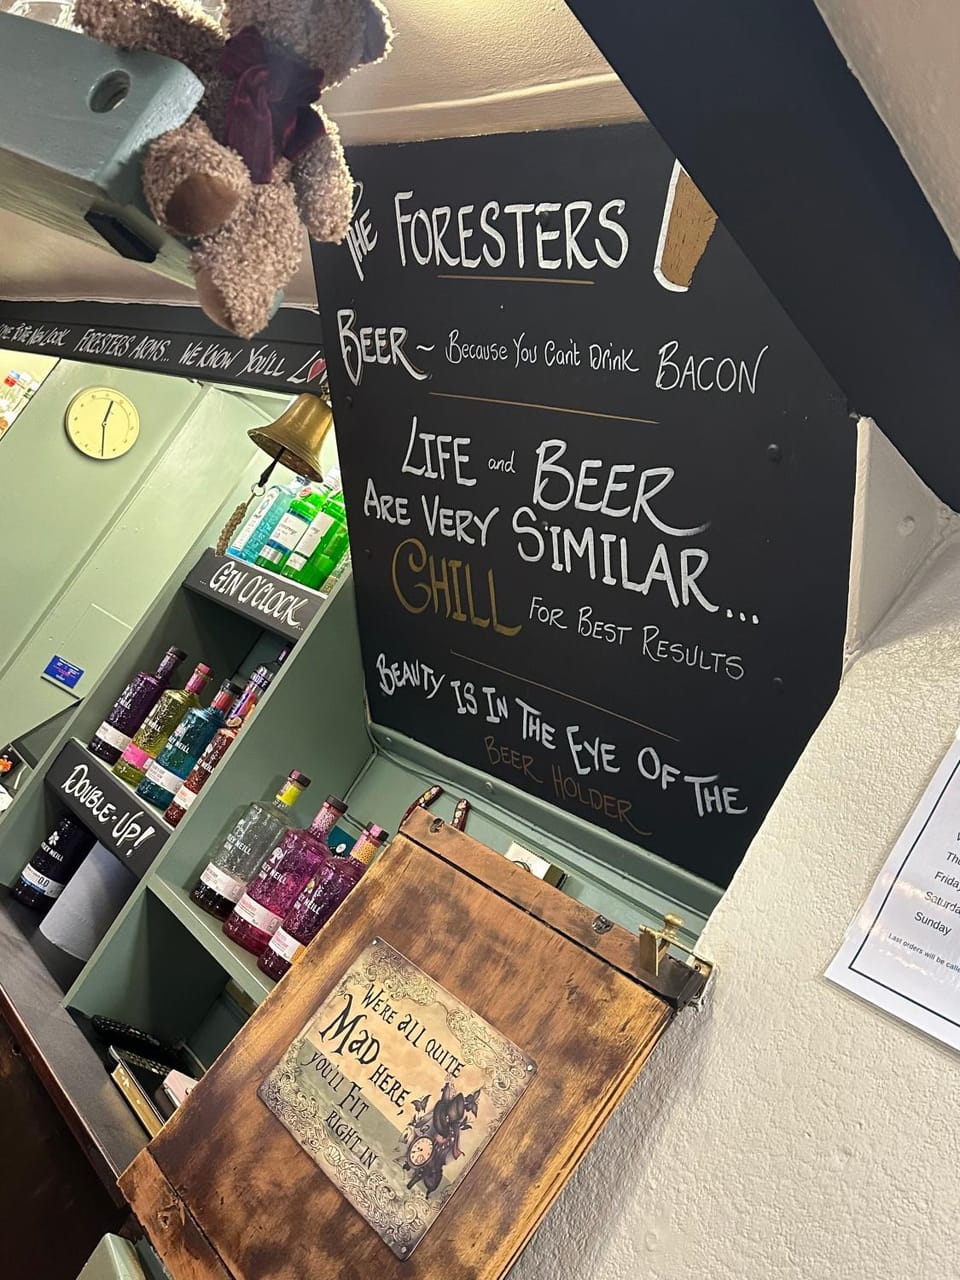 THE FORESTERS
BEER ~ Because You Can't Drink BACON
LIFE and BEER
ARE VERY SIMILAR...
CHILL FOR BEST RESULTS
BEAUTY IS IN THE EYE OF THE
BEER HOLDER
TO THE NEW LOOK FORESTERS ARMS... WE KNOW YOU'LL
...GIN O'CLOCK...
DOUBLE-UP!
0.0
WE'RE ALL QUITE
MAD HERE,
YOU'LL FIT
RIGHT IN
Friday
Sunday
Last orders will be